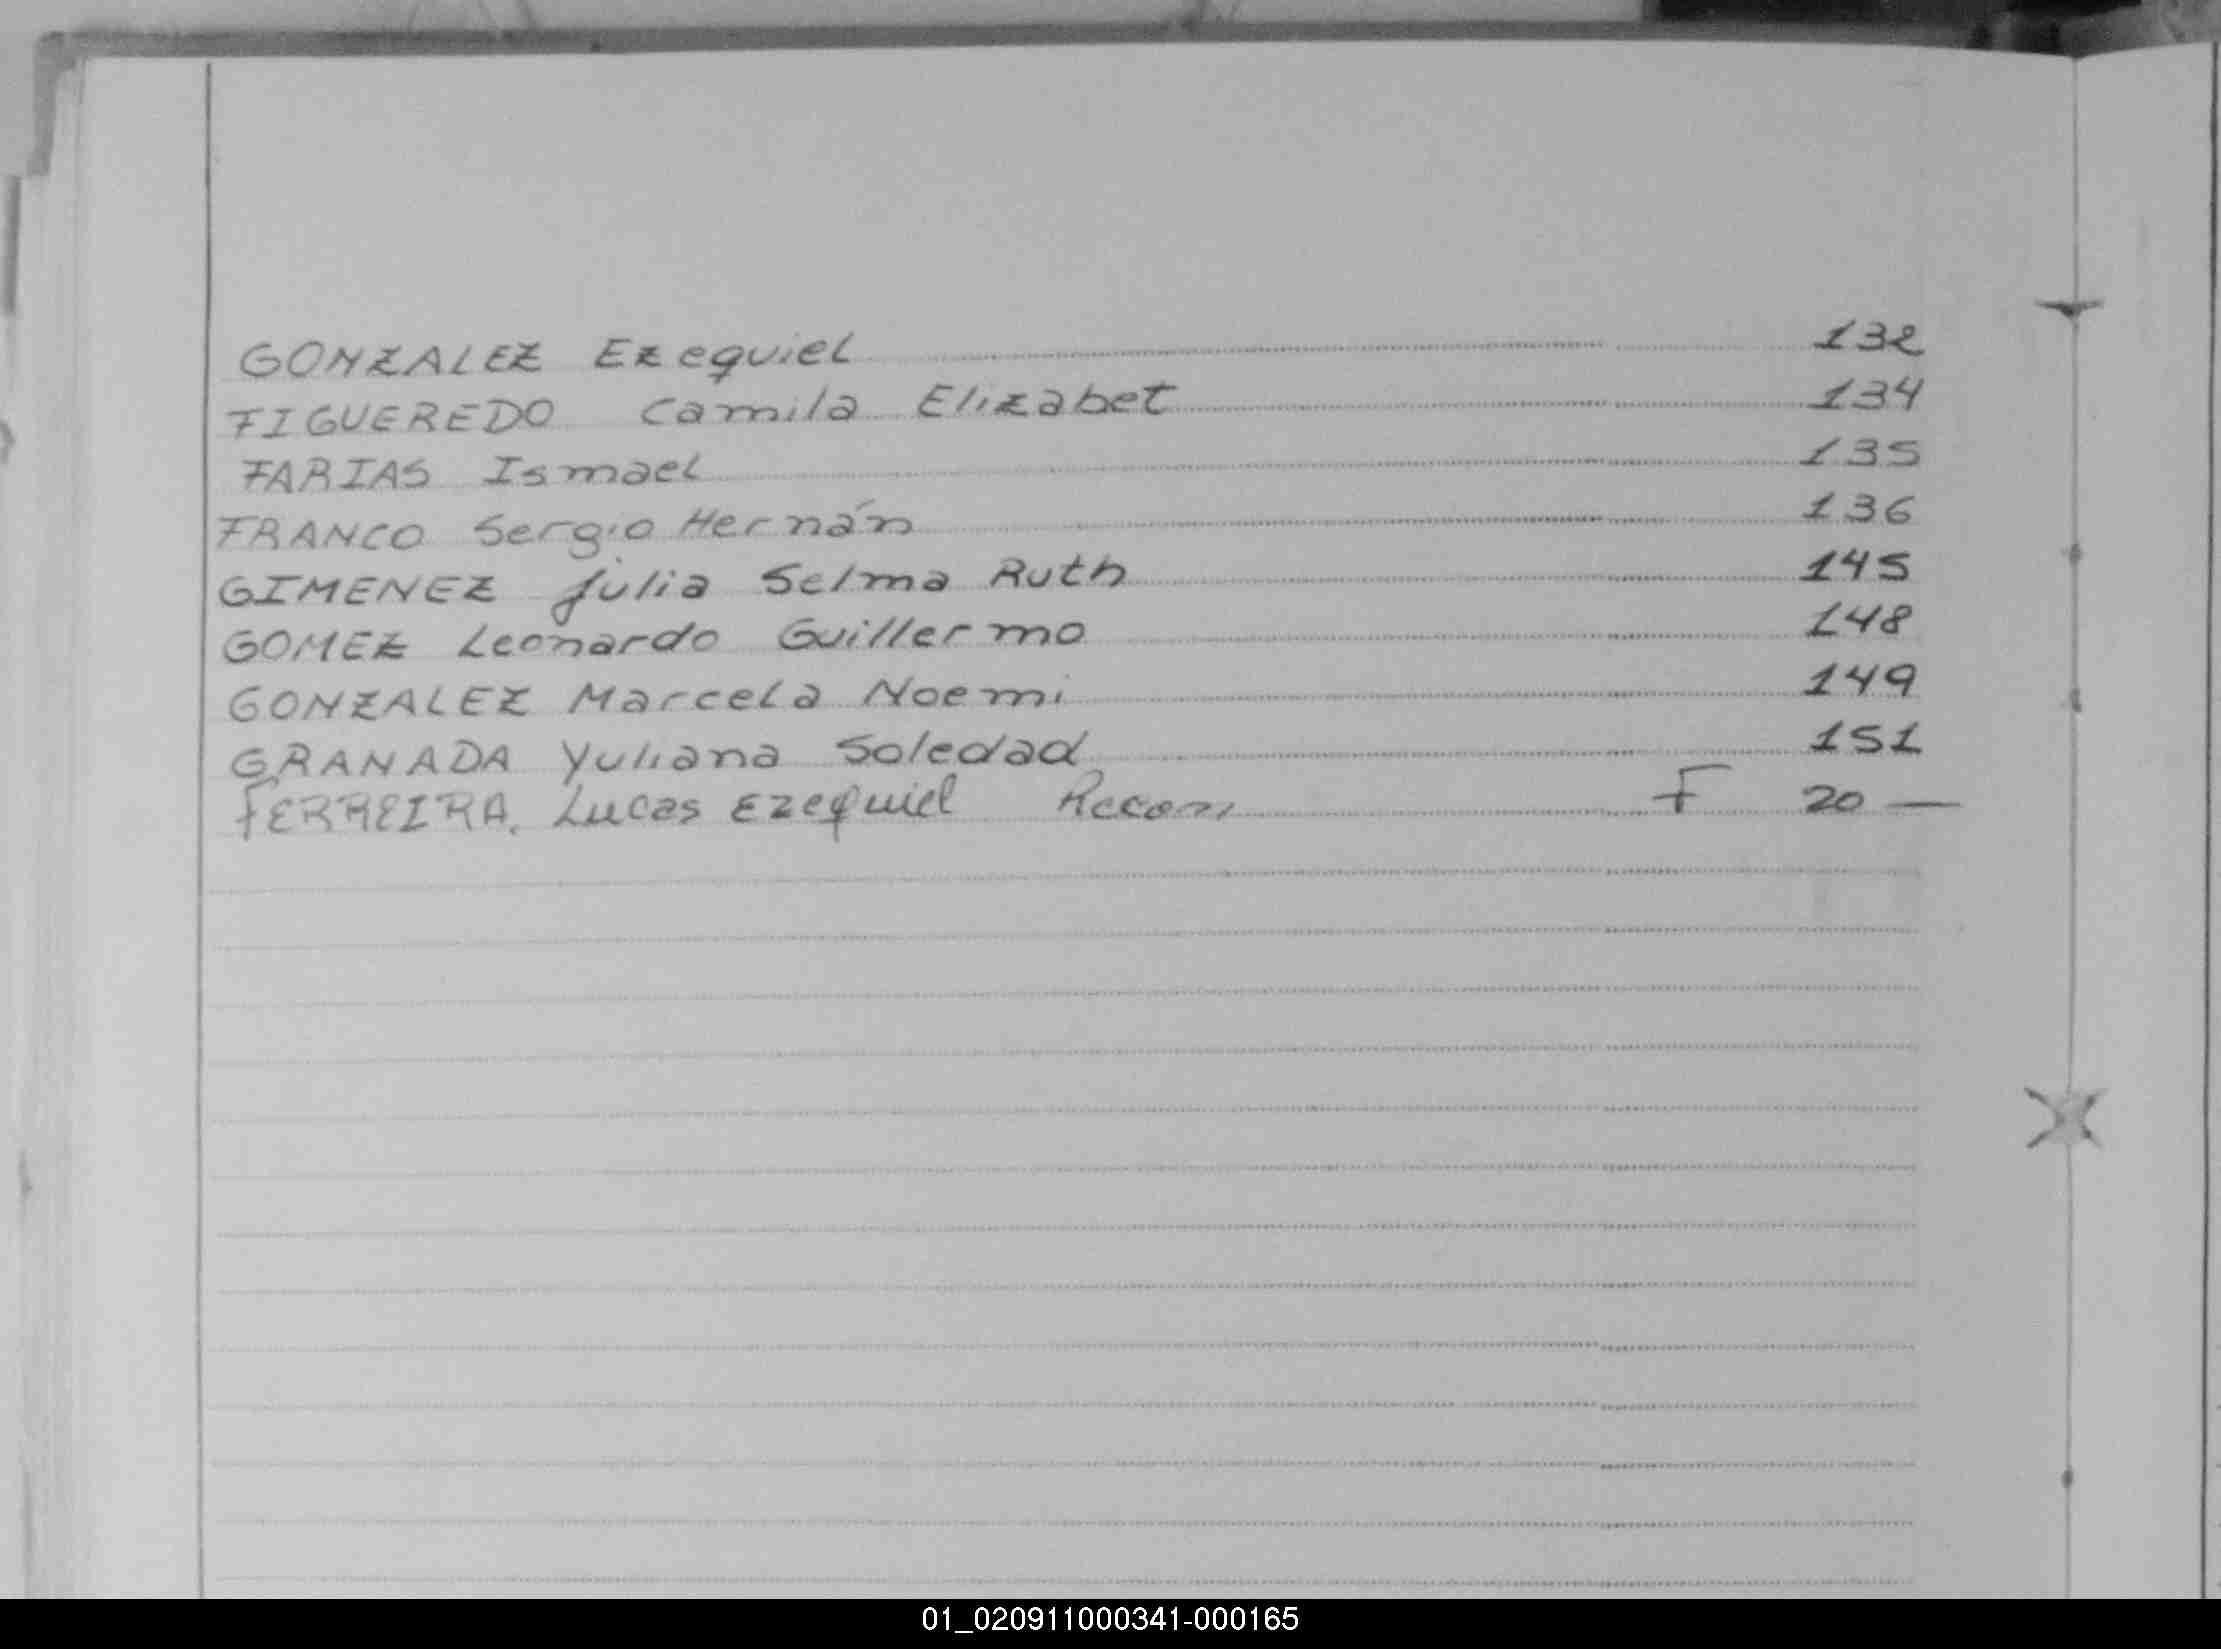 GONZALEZ Ezequiel 132
FIGUEREDO Camila Elizabet 134
FARIAS Ismael 135
FRANCO Sergio Hernán 136
GIMENEZ Julia Selma Ruth 145
GOMEZ Leonardo Guillermo 148
GONZALEZ Marcela Noemi 149
GRANADA Yuliana Soledad 151
FERREIRA, Lucas Ezequiel F 20 —
01_020911000341-000165